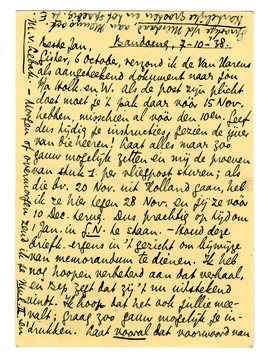 Beste Jan, Bandoeng, 7-10-'38.
Gister, 6 october, verzond ik de Van Harens
als aangeteekend dokument naar jou
Als de post zijn plicht
doet moet je 't pak daar vóór 15 Nov.
hebben, misschien al vóór den 10en. Geef
dus tijdig je instructies, gezien de ijver
van die heeren! Laat alles maar zoo
gauw mogelijk zetten en mij de proeven
van stuk 1 per vliegpost sturen; als
die bv. 20 Nov. uit Holland gaan, heb
ik ze hier tegen 28 Nov. en jij ze vóór
10 Dec. terug. Dus prachtig op tijd om
1 Jan. in G.N. te staan. — Houd deze
brief ergens in 't gezicht om bij wijze
van memorandum te dienen. Ik heb
nog hoopen verbeterd aan dat verhaal,
en Bep zegt dat zij 't nu uitstekend
vindt. Ik hoop dat het ook jullie mee-
valt; graag zoo gauw mogelijk je in-
drukken. Laat vooral dat voorwoord van
M. v. Lebak. Morgen of overmorgen zend ik je